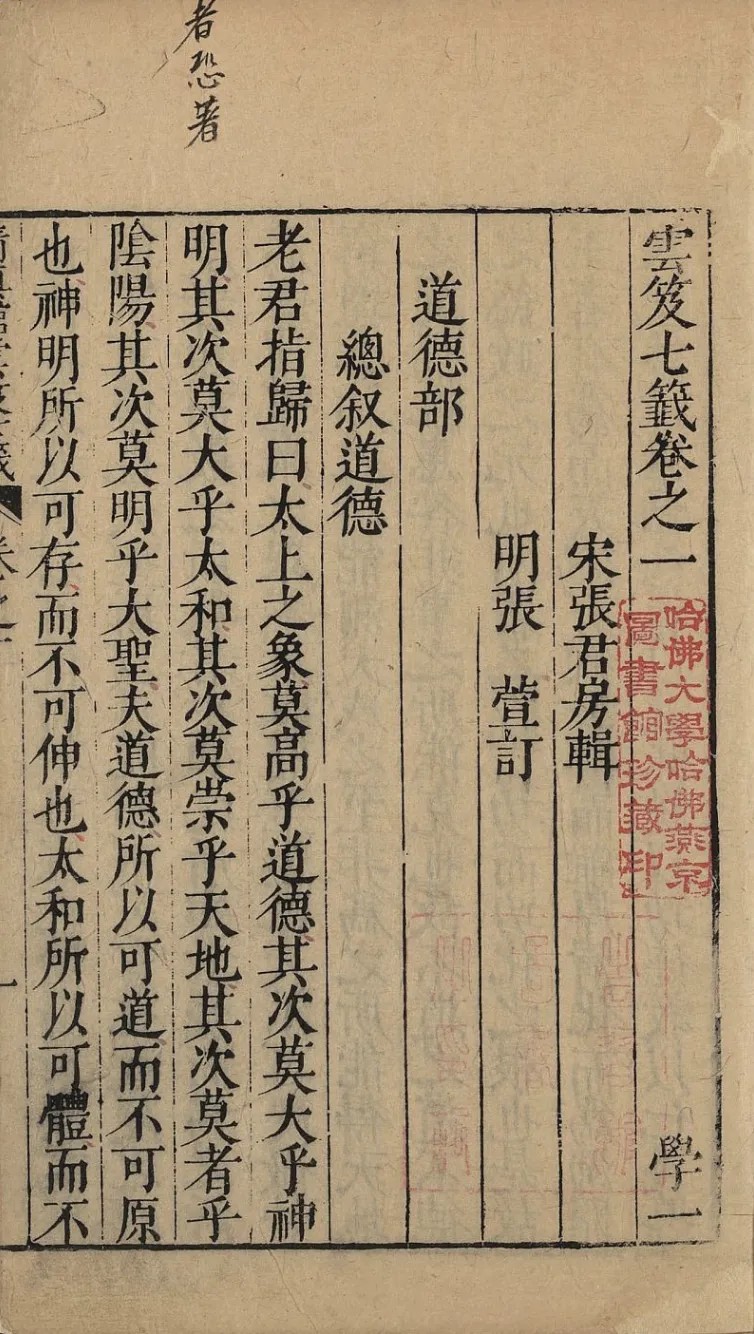 者恐著
雲笈七籖卷之一
學一
宋張君房輯
明張萱訂
道德部
總叙道德
老君指歸曰太上之象莫高乎道德其次莫大乎神
明其次莫大乎太和其次莫崇乎天地其次莫者乎
陰陽其次莫明乎大聖夫道德所以可道而不可原
也神明所以可存而不可伸也太和所以可體而不
哈佛大學哈佛燕京
圖書館珍藏印